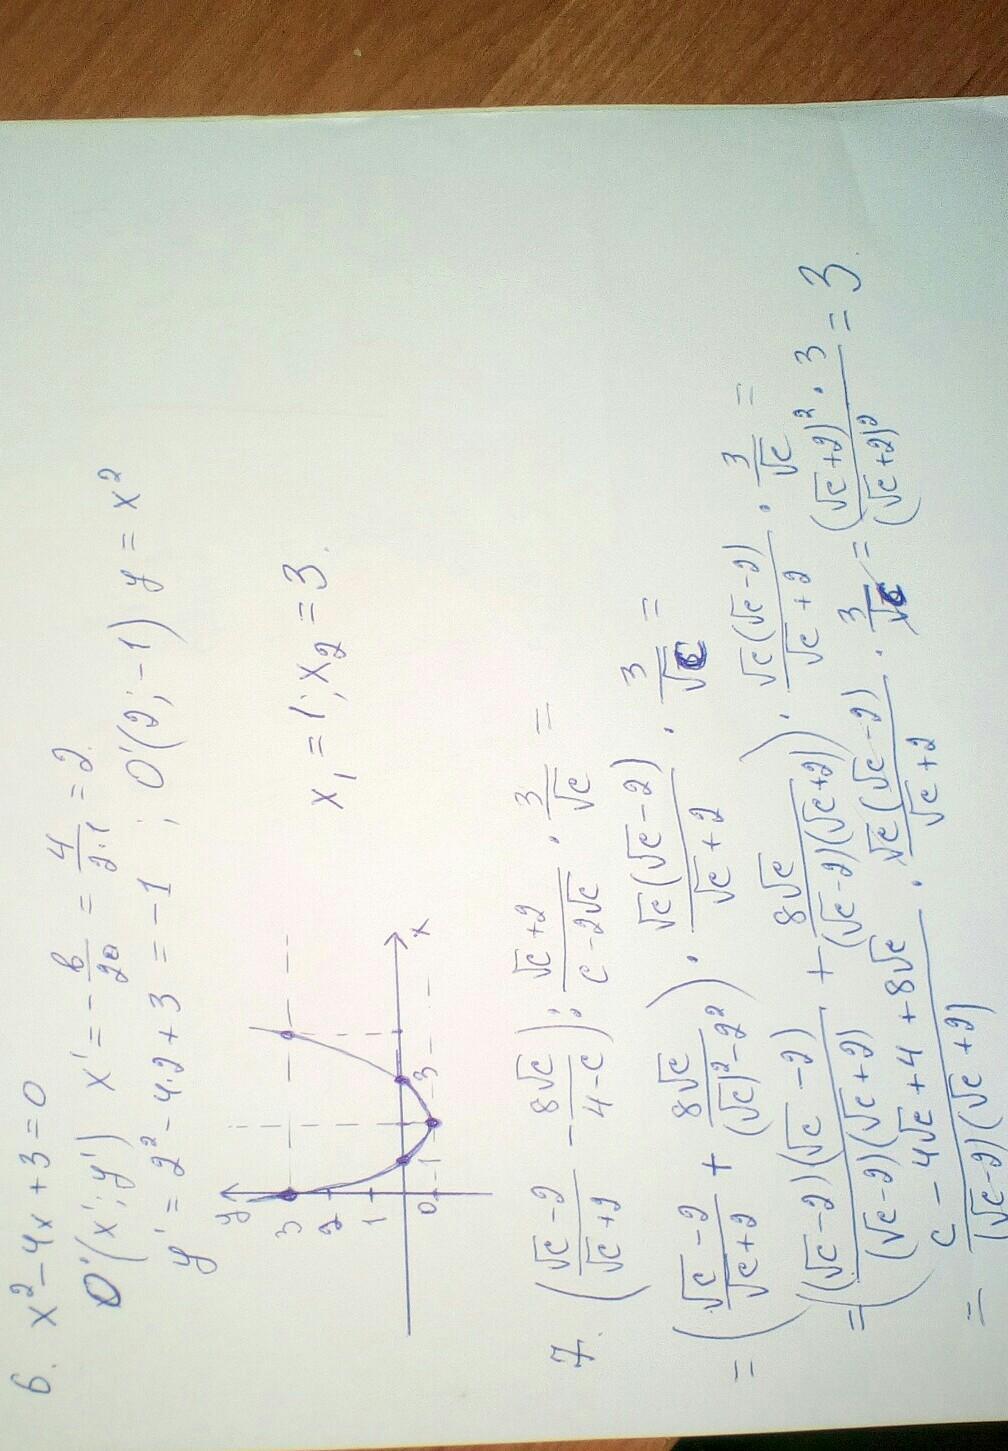 6. x² - 4x + 3 = 0
O'(x'; y') x' = -b/2a = 4/2·1 = 2.
y' = 2² - 4·2 + 3 = -1 ; O'(2; -1) y = x²
y
3
2
1
0 1 3 x
x₁ = 1; x₂ = 3.
7. ((√c - 2)/(√c + 2) - 8√c/(4 - c)) : (√c + 2)/(c - 2√c) · 3/√c =
= ((√c - 2)/(√c + 2) + 8√c/((√c)² - 2²)) · √c(√c - 2)/(√c + 2) · 3/√c =
= ((√c - 2)(√c - 2)/((√c - 2)(√c + 2)) + 8√c/((√c - 2)(√c + 2))) · √c(√c - 2)/(√c + 2) · 3/√c =
= (c - 4√c + 4 + 8√c)/((√c - 2)(√c + 2)) · √c(√c - 2)/(√c + 2) · 3/√c = (√c + 2)² · 3/(√c + 2)² = 3.